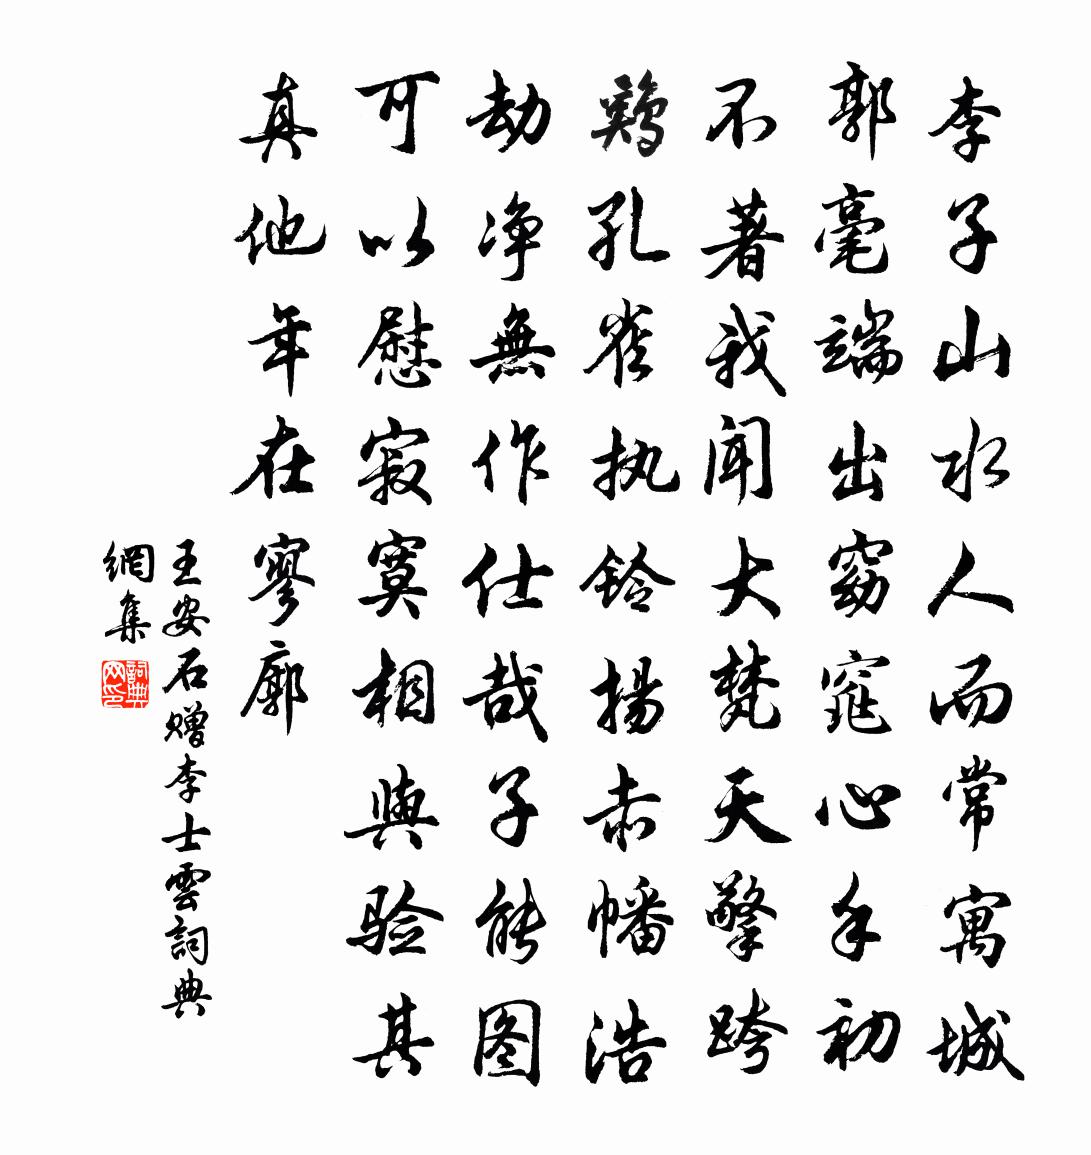 李子山水人而常寓城
郭毫端出窈窕心手初
不著我闻大梵天擎跨
鷄孔雀执鈴揚赤幡浩
劫净無作仕哉子能图
可以慰寂寞相與验其
真他年在寥廓
王安石赠李士雲詞典
網集
詞典网印